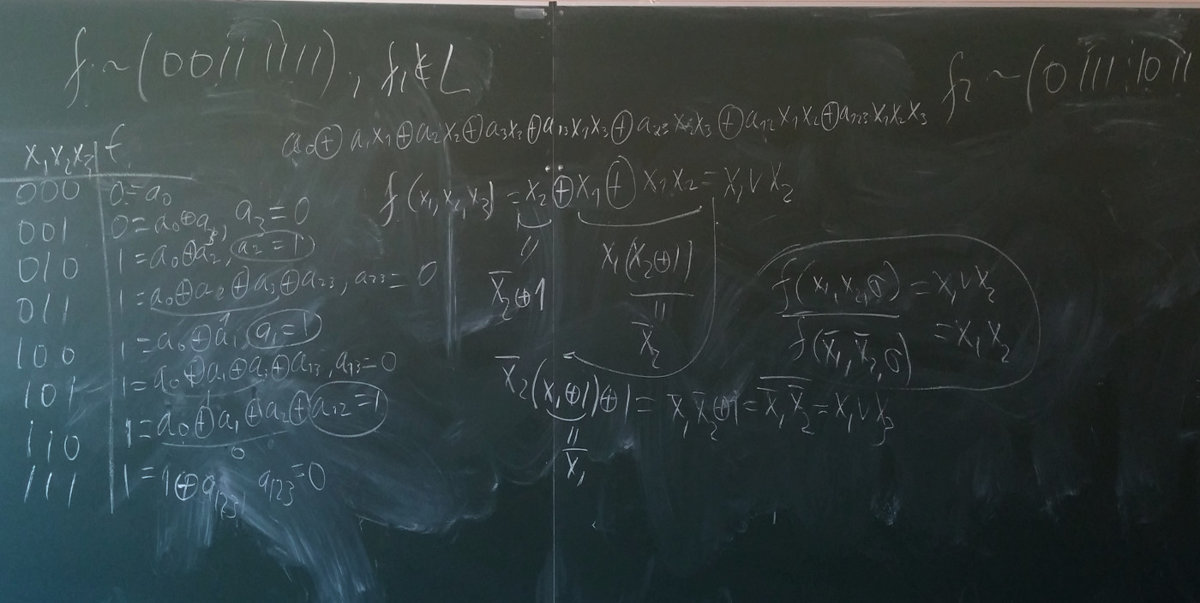 f₁ ~ (00111111), f₁ ∉ L
f₂ ~ (01111011
a₀ ⊕ a₁x₁ ⊕ a₂x₂ ⊕ a₃x₃ ⊕ a₁₃x₁x₃ ⊕ a₂₃x₂x₃ ⊕ a₁₂x₁x₂ ⊕ a₁₂₃x₁x₂x₃
x₁x₂x₃ | f
000 0 = a₀
001 0 = a₀ ⊕ a₃, a₃ = 0
010 1 = a₀ ⊕ a₂, a₂ = 1
011 1 = a₀ ⊕ a₂ ⊕ a₃ ⊕ a₂₃, a₂₃ = 0
100 1 = a₀ ⊕ a₁, a₁ = 1
101 1 = a₀ ⊕ a₁ ⊕ a₃ ⊕ a₁₃, a₁₃ = 0
110 1 = a₀ ⊕ a₁ ⊕ a₂ ⊕ a₁₂ = 1
0
111 1 = 1 ⊕ a₁₂₃, a₁₂₃ = 0
f(x₁, x₂, x₃) = x₂ ⊕ x₁ ⊕ x₁x₂ = x₁ ∨ x₂
=
x̄₂ ⊕ 1
x₁(x₂ ⊕ 1)
=
x̄₂
x̄₂(x₁ ⊕ 1) ⊕ 1 = x̄₁x̄₂ ⊕ 1 = x̄₁x̄₂ = x₁ ∨ x₂
=
x̄₁
f(x₁, x₂, 0) = x₁ ∨ x₂
f(x̄₁, x̄₂, 0) = x₁x₂